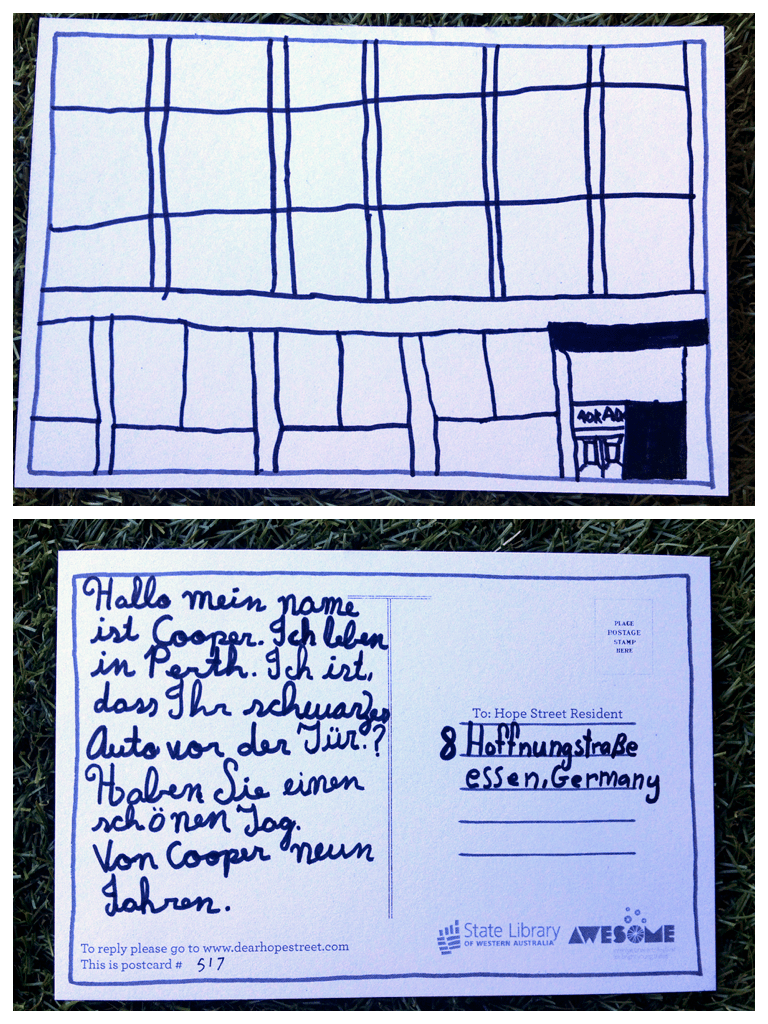 Hallo mein name
ist Cooper. Ich leben
in Perth. Ich ist,
dass Ihr schwarzes
Auto vor der Tür.?
Haben Sie einen
schönen Tag.
Von Cooper neun
Jahren.
To reply please go to www.dearhopestreet.com
This is postcard # 517
PLACE
POSTAGE
STAMP
HERE
To: Hope Street Resident
8 Hoffnungstraße
essen, Germany
State Library
OF WESTERN AUSTRALIA
AWESOME